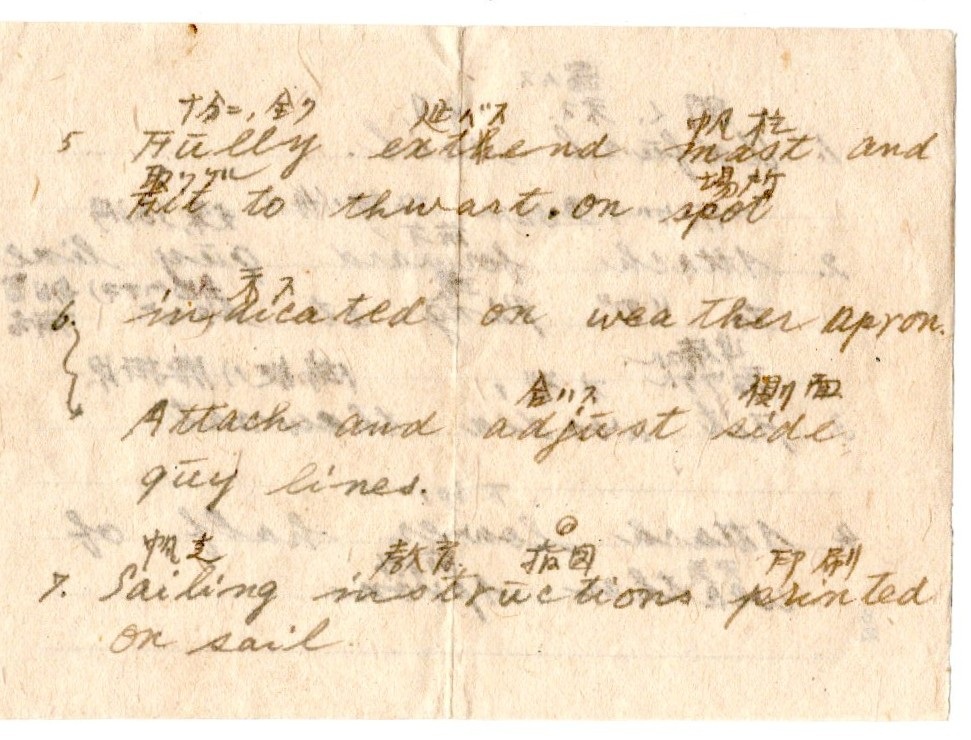 十分ニ, 全ク 延バス 帆柱
5 Fully exthend mast and
取ツケル 場所
Fit to thwart. on spot
示ス
6. indicated on weather apron.
合ハス 側面
Attach and adjust side
guy lines.
帆走 教育 指図 印刷
7. Sailing instructions printed
on sail